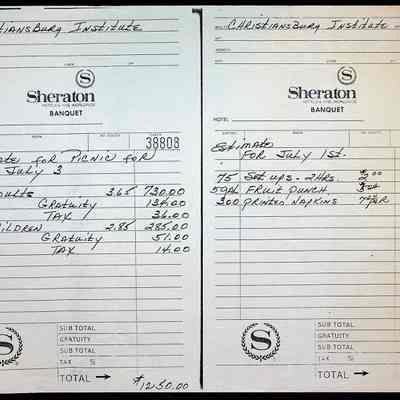 TIANSBURG INSTITUTE
Sheraton
HOTELS & INNS, WORLDWIDE
BANQUET
38808
ATE FOR PICNIC FOR
JULY 3
DULTS 3.65 730.00
GRATUITY 134.00
TAX 36.00
HILDREN 2.85 285.00
GRATUITY 51.00
TAX 14.00
SUB TOTAL
GRATUITY
SUB TOTAL
TAX %
TOTAL → $1250.00
CHRISTIANSBURG INSTITUTE
Sheraton
HOTELS & INNS, WORLDWIDE
BANQUET
HOTEL
Estimate
FOR JULY 1st.
75 SET UPS - 2 HRS.
5 GAL FRUIT PUNCH
300 PRINTED NAPKINS
SUB TOTAL
GRATUITY
SUB TOTAL
TAX %
TOTAL →